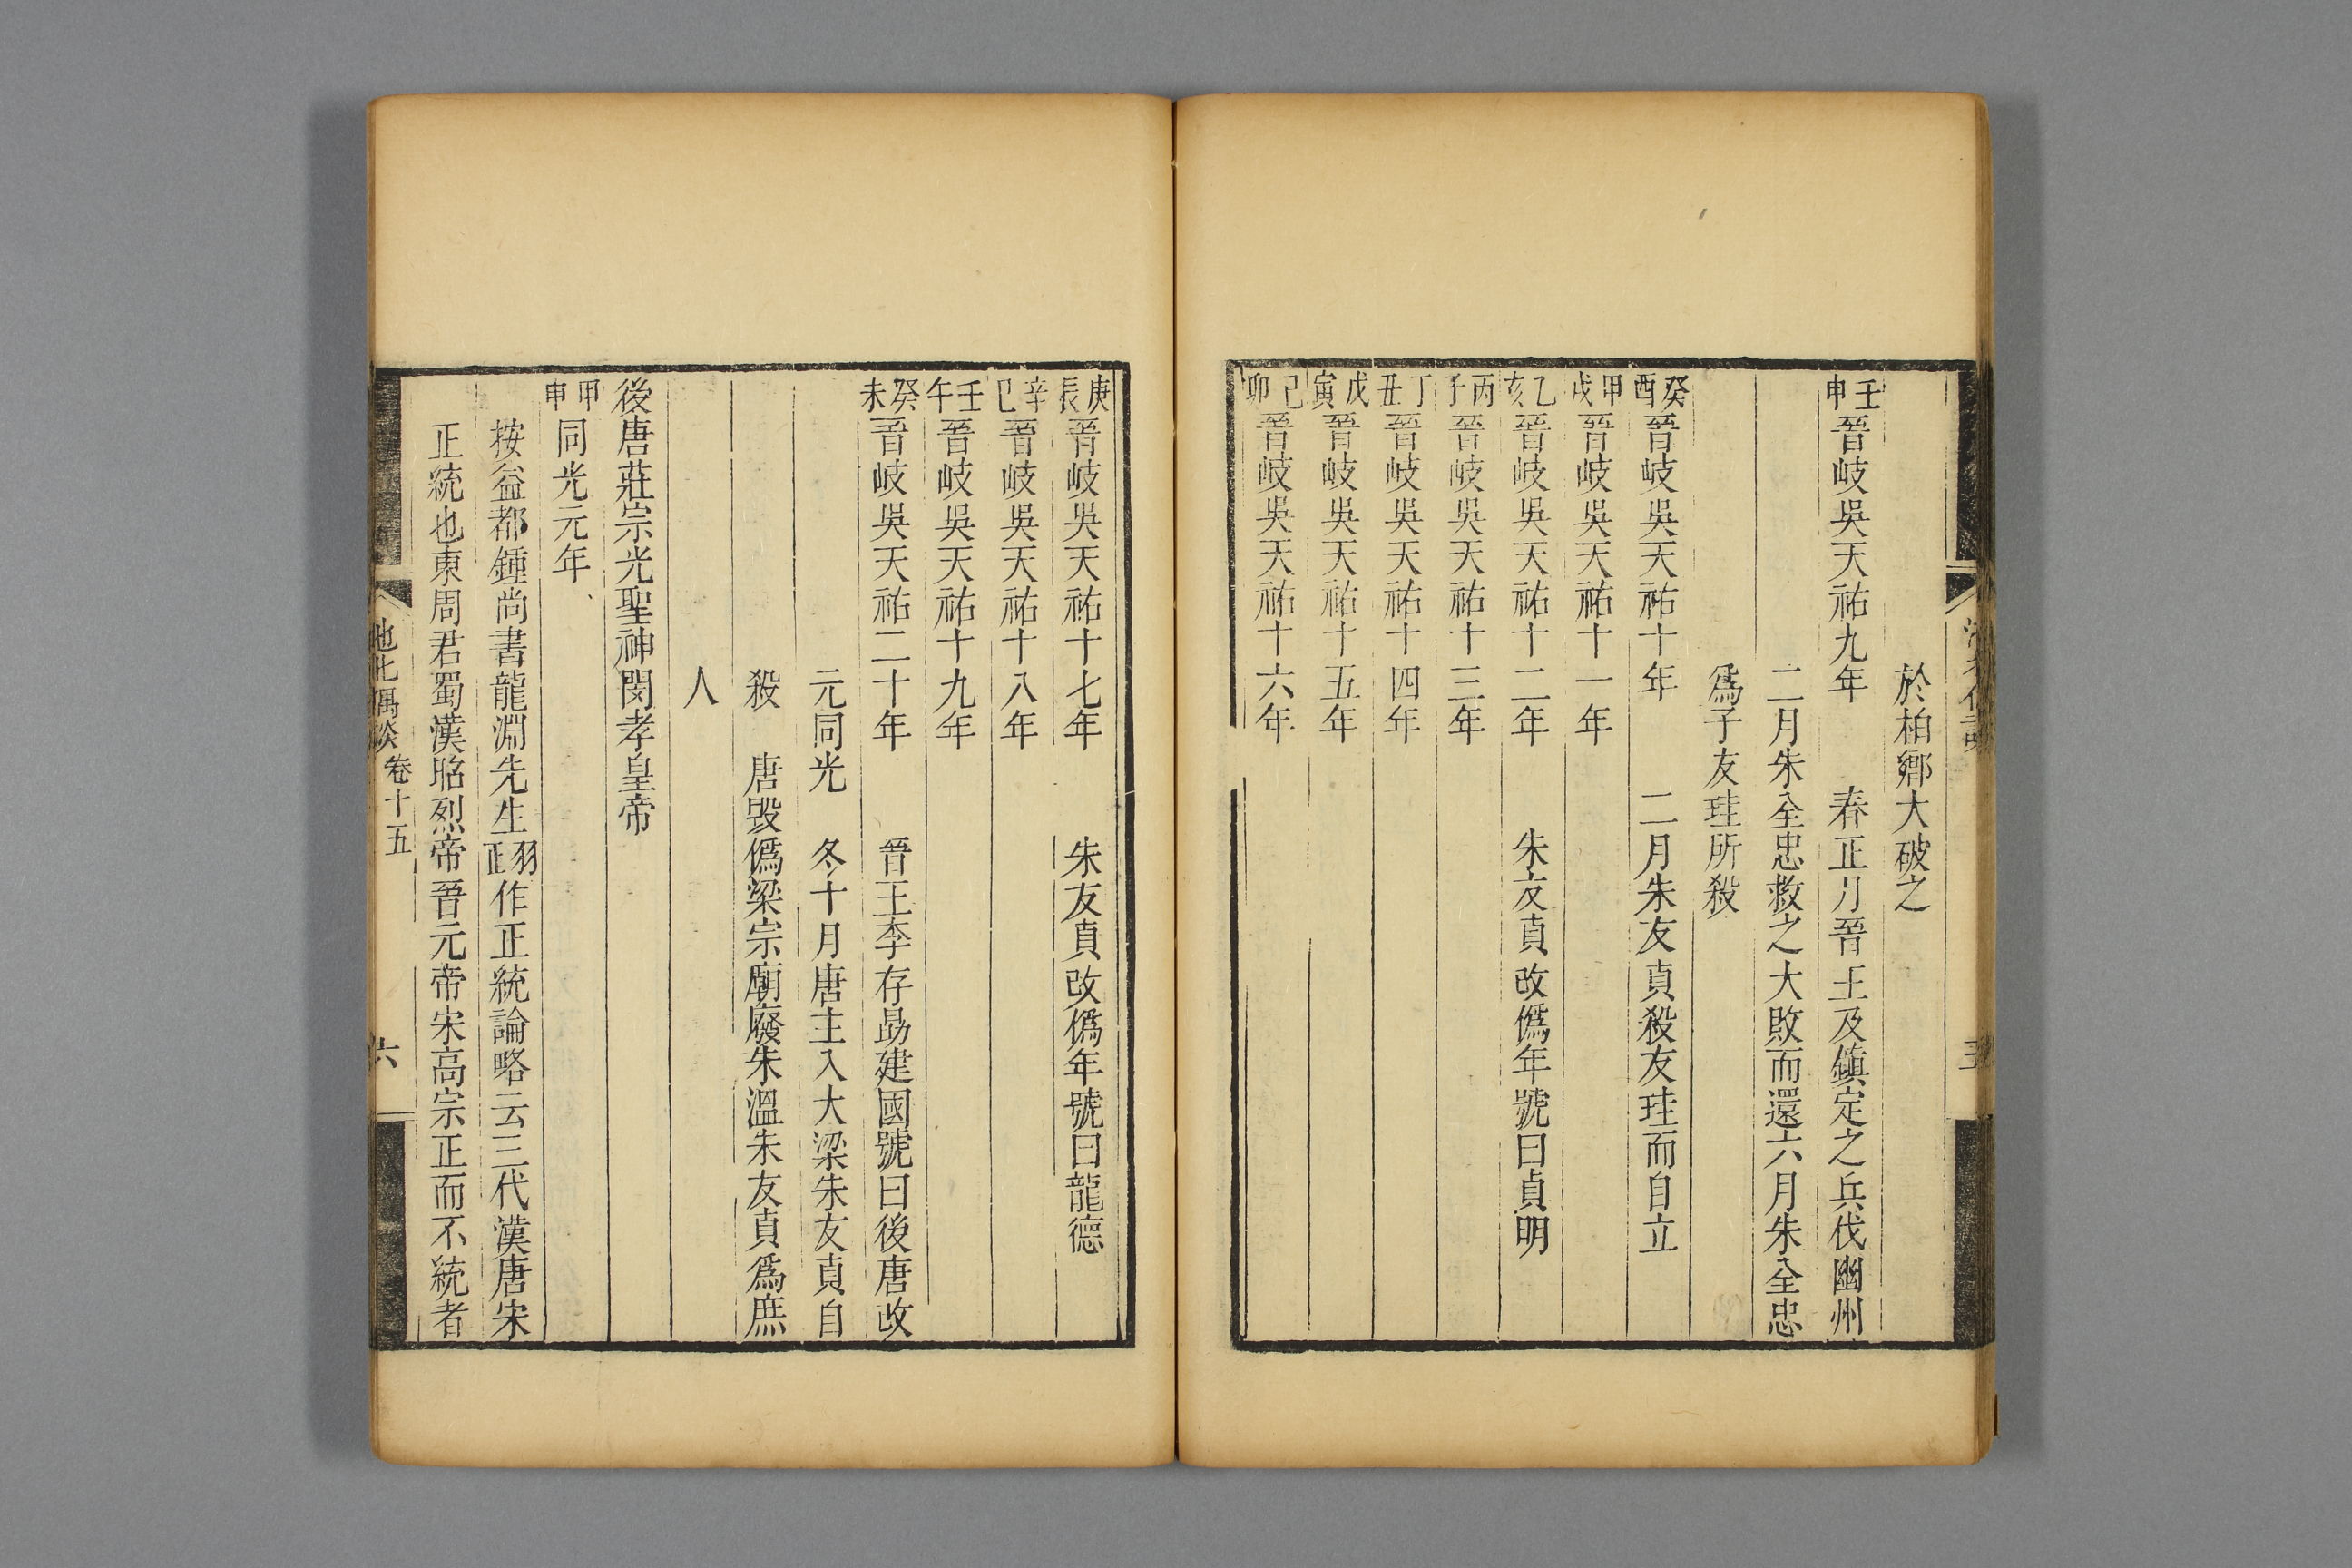 於柏鄉大破之
壬申晉岐吳天祐九年　春正月晉王及鎮定之兵伐幽州
二月朱全忠救之大敗而還六月朱全忠
爲子友珪所殺
癸酉晉岐吳天祐十年　二月朱友貞殺友珪而自立
甲戌晉岐吳天祐十一年
乙亥晉岐吳天祐十二年　朱友貞改僞年號曰貞明
丙子晉岐吳天祐十三年
丁丑晉岐吳天祐十四年
戊寅晉岐吳天祐十五年
己卯晉岐吳天祐十六年
庚辰晉岐吳天祐十七年　朱友貞改僞年號曰龍德
辛巳晉岐吳天祐十八年
壬午晉岐吳天祐十九年
癸未晉岐吳天祐二十年　晉王李存勗建國號曰後唐改
元同光　冬十月唐主入大梁朱友貞自
殺　唐毀僞梁宗廟廢朱溫朱友貞爲庶
人
後唐莊宗光聖神閔孝皇帝
甲申同光元年
按益都鍾尚書龍淵先生羽正作正統論略云三代漢唐宋
正統也東周君蜀漢昭烈帝晉元帝宋高宗正而不統者
池北偶談 卷十五 六